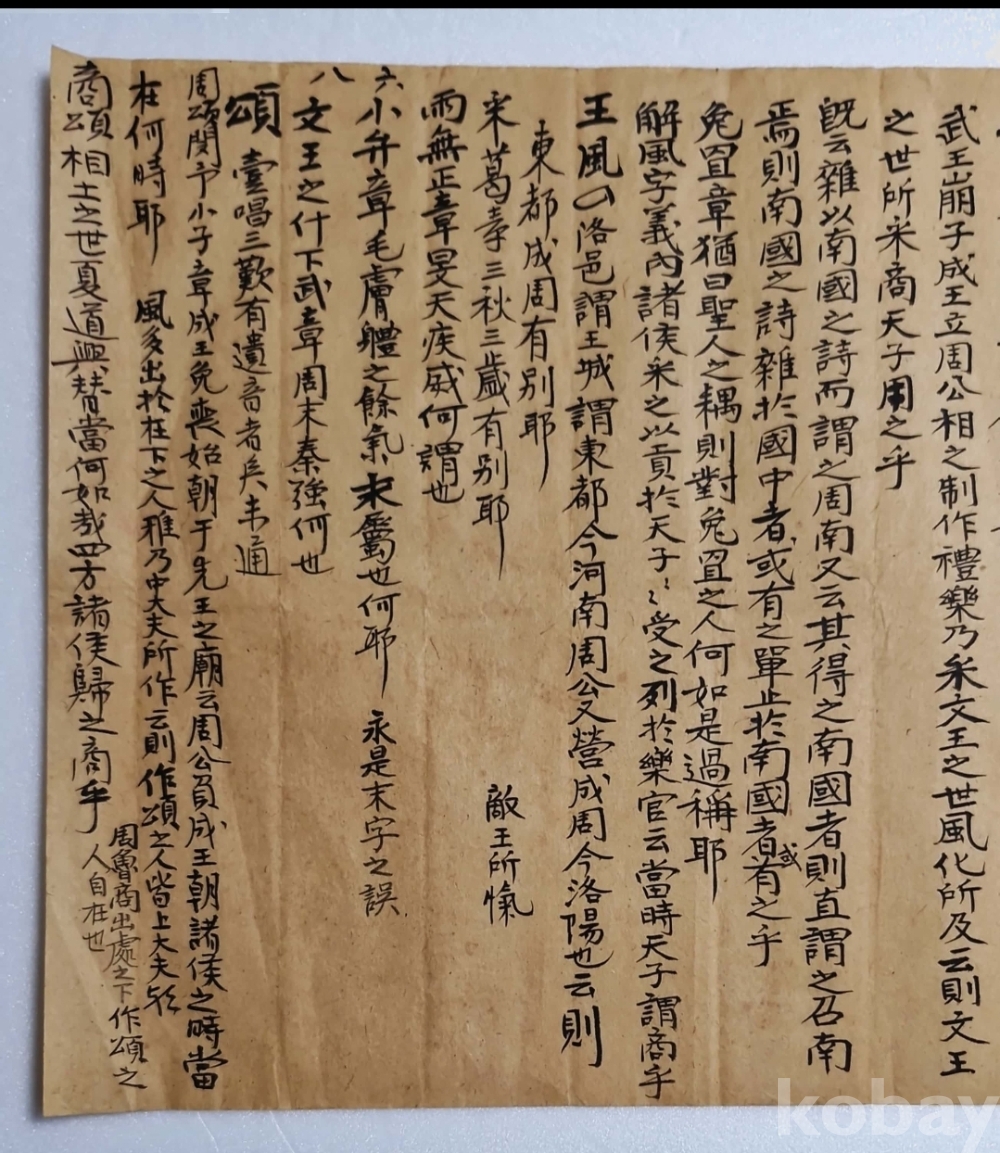 武王崩子成王立周公相之制作禮樂乃采文王之世風化所及云則文王
之世所采商天子用之乎
旣云雜以南國之詩而謂之周南又云其得之南國者則直謂之召南
焉則南國之詩雜於國中者或有之單止於南國者或有之乎
兔罝章猶曰聖人之耦則對兔罝之人何如是過稱耶
解風字義內諸侯采之以貢於天子〻受之列於樂官云當時天子謂商乎
王風 洛邑謂王城謂東都今河南周公又營成周今洛陽也云則
東都成周有別耶
采葛章三秋三歲有別耶 敵王所愾
雨無正章旻天疾威何謂也
六 小弁章毛膚體之餘氣末屬也何耶 永是末字之誤
八 文王之什下武章周末秦強何也
頌 壹唱三歎有遺音者矣未通
周頌閔予小子章成王免喪始朝于先王之廟云周公負成王朝諸侯之時當
在何時耶 風多出於在下之人雅乃中大夫所作云則作頌之人皆上大夫歟
周魯商出處之下作頌之
人自在也
商頌相土之世夏道興替當何如哉四方諸侯歸之商乎
kobay